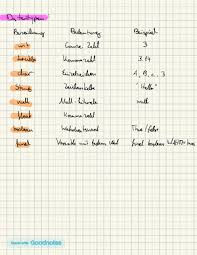 Datentypen
Bezeichnung Bedeutung Beispiel
int Ganze Zahl 3
double Kommazahl 3.14
char Einzelzeichen A, B, c, 3
String Zeichenkette "Hallo"
null Null-Literale null
float Kommazahl
boolean Wahrheitswert True / false
final Variable mit festem Wert final boolean WAHR = true
Made with Goodnotes